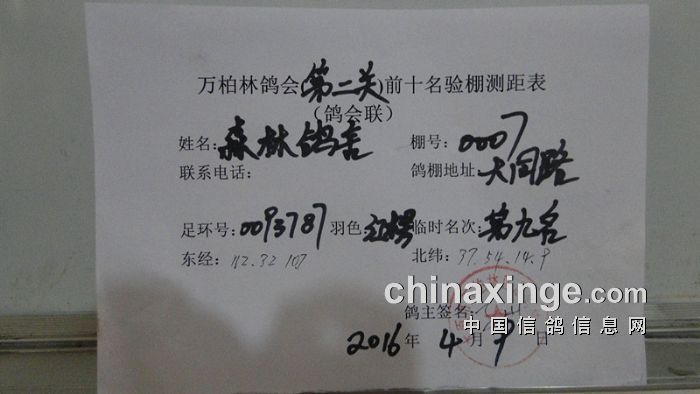 万柏林鸽会(第二关)前十名验棚测距表
(鸽会联)
姓名:森林鸽舍 棚号:0007
联系电话: 鸽棚地址:大同路
足环号:0093787 羽色 临时名次:第九名
东经:112.32 107 北纬:37.54.14.9
chinaxinge.com
鸽主签名:
中国信鸽信息网
2016年4月9日